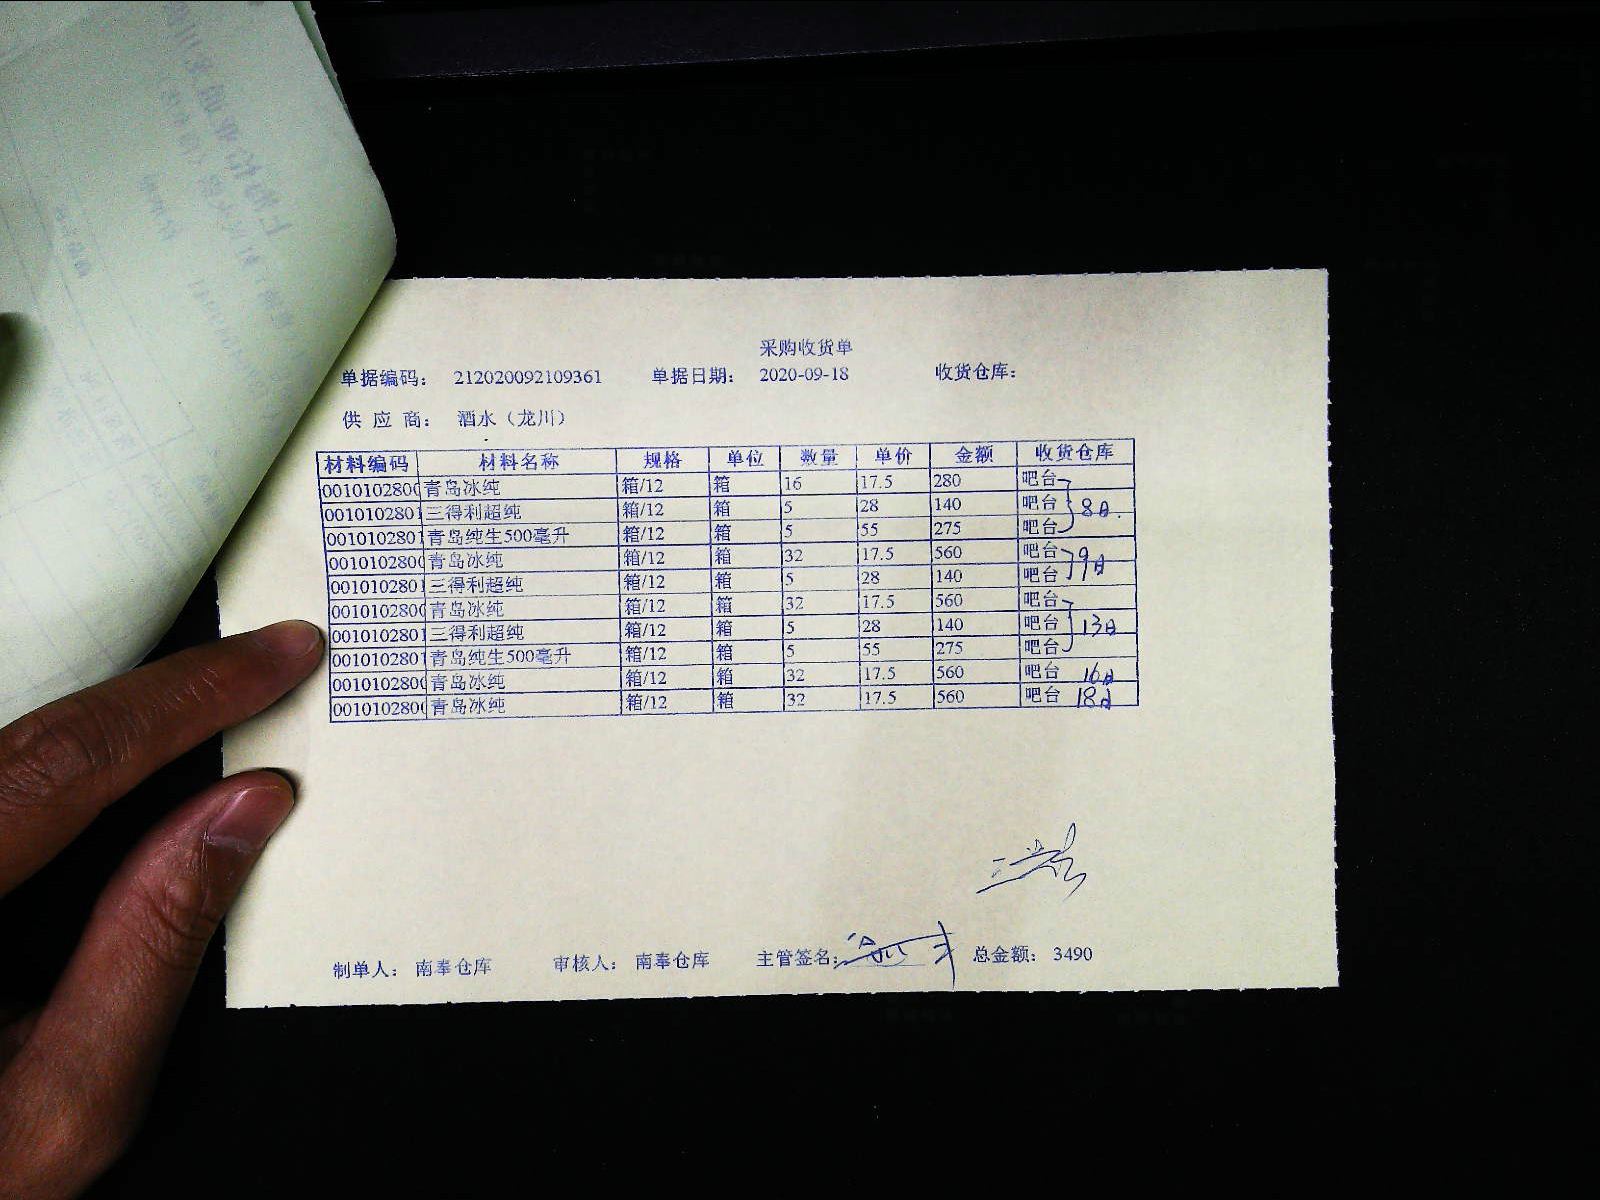 采购收货单
单据编码： 212020092109361 单据日期： 2020-09-18 收货仓库：
供 应 商： 酒水（龙川）
材料编码 材料名称 规格 单位 数量 单价 金额 收货仓库
0010102800 青岛冰纯 箱/12 箱 16 17.5 280 吧台
0010102801 三得利超纯 箱/12 箱 5 28 140 吧台 8日.
0010102801 青岛纯生500毫升 箱/12 箱 5 55 275 吧台
0010102800 青岛冰纯 箱/12 箱 32 17.5 560 吧台 9日
0010102801 三得利超纯 箱/12 箱 5 28 140 吧台
0010102800 青岛冰纯 箱/12 箱 32 17.5 560 吧台
0010102801 三得利超纯 箱/12 箱 5 28 140 吧台 13日
0010102801 青岛纯生500毫升 箱/12 箱 5 55 275 吧台
0010102800 青岛冰纯 箱/12 箱 32 17.5 560 吧台 16日
0010102800 青岛冰纯 箱/12 箱 32 17.5 560 吧台 18日
制单人： 南奉仓库 审核人： 南奉仓库 主管签名： 总金额： 3490